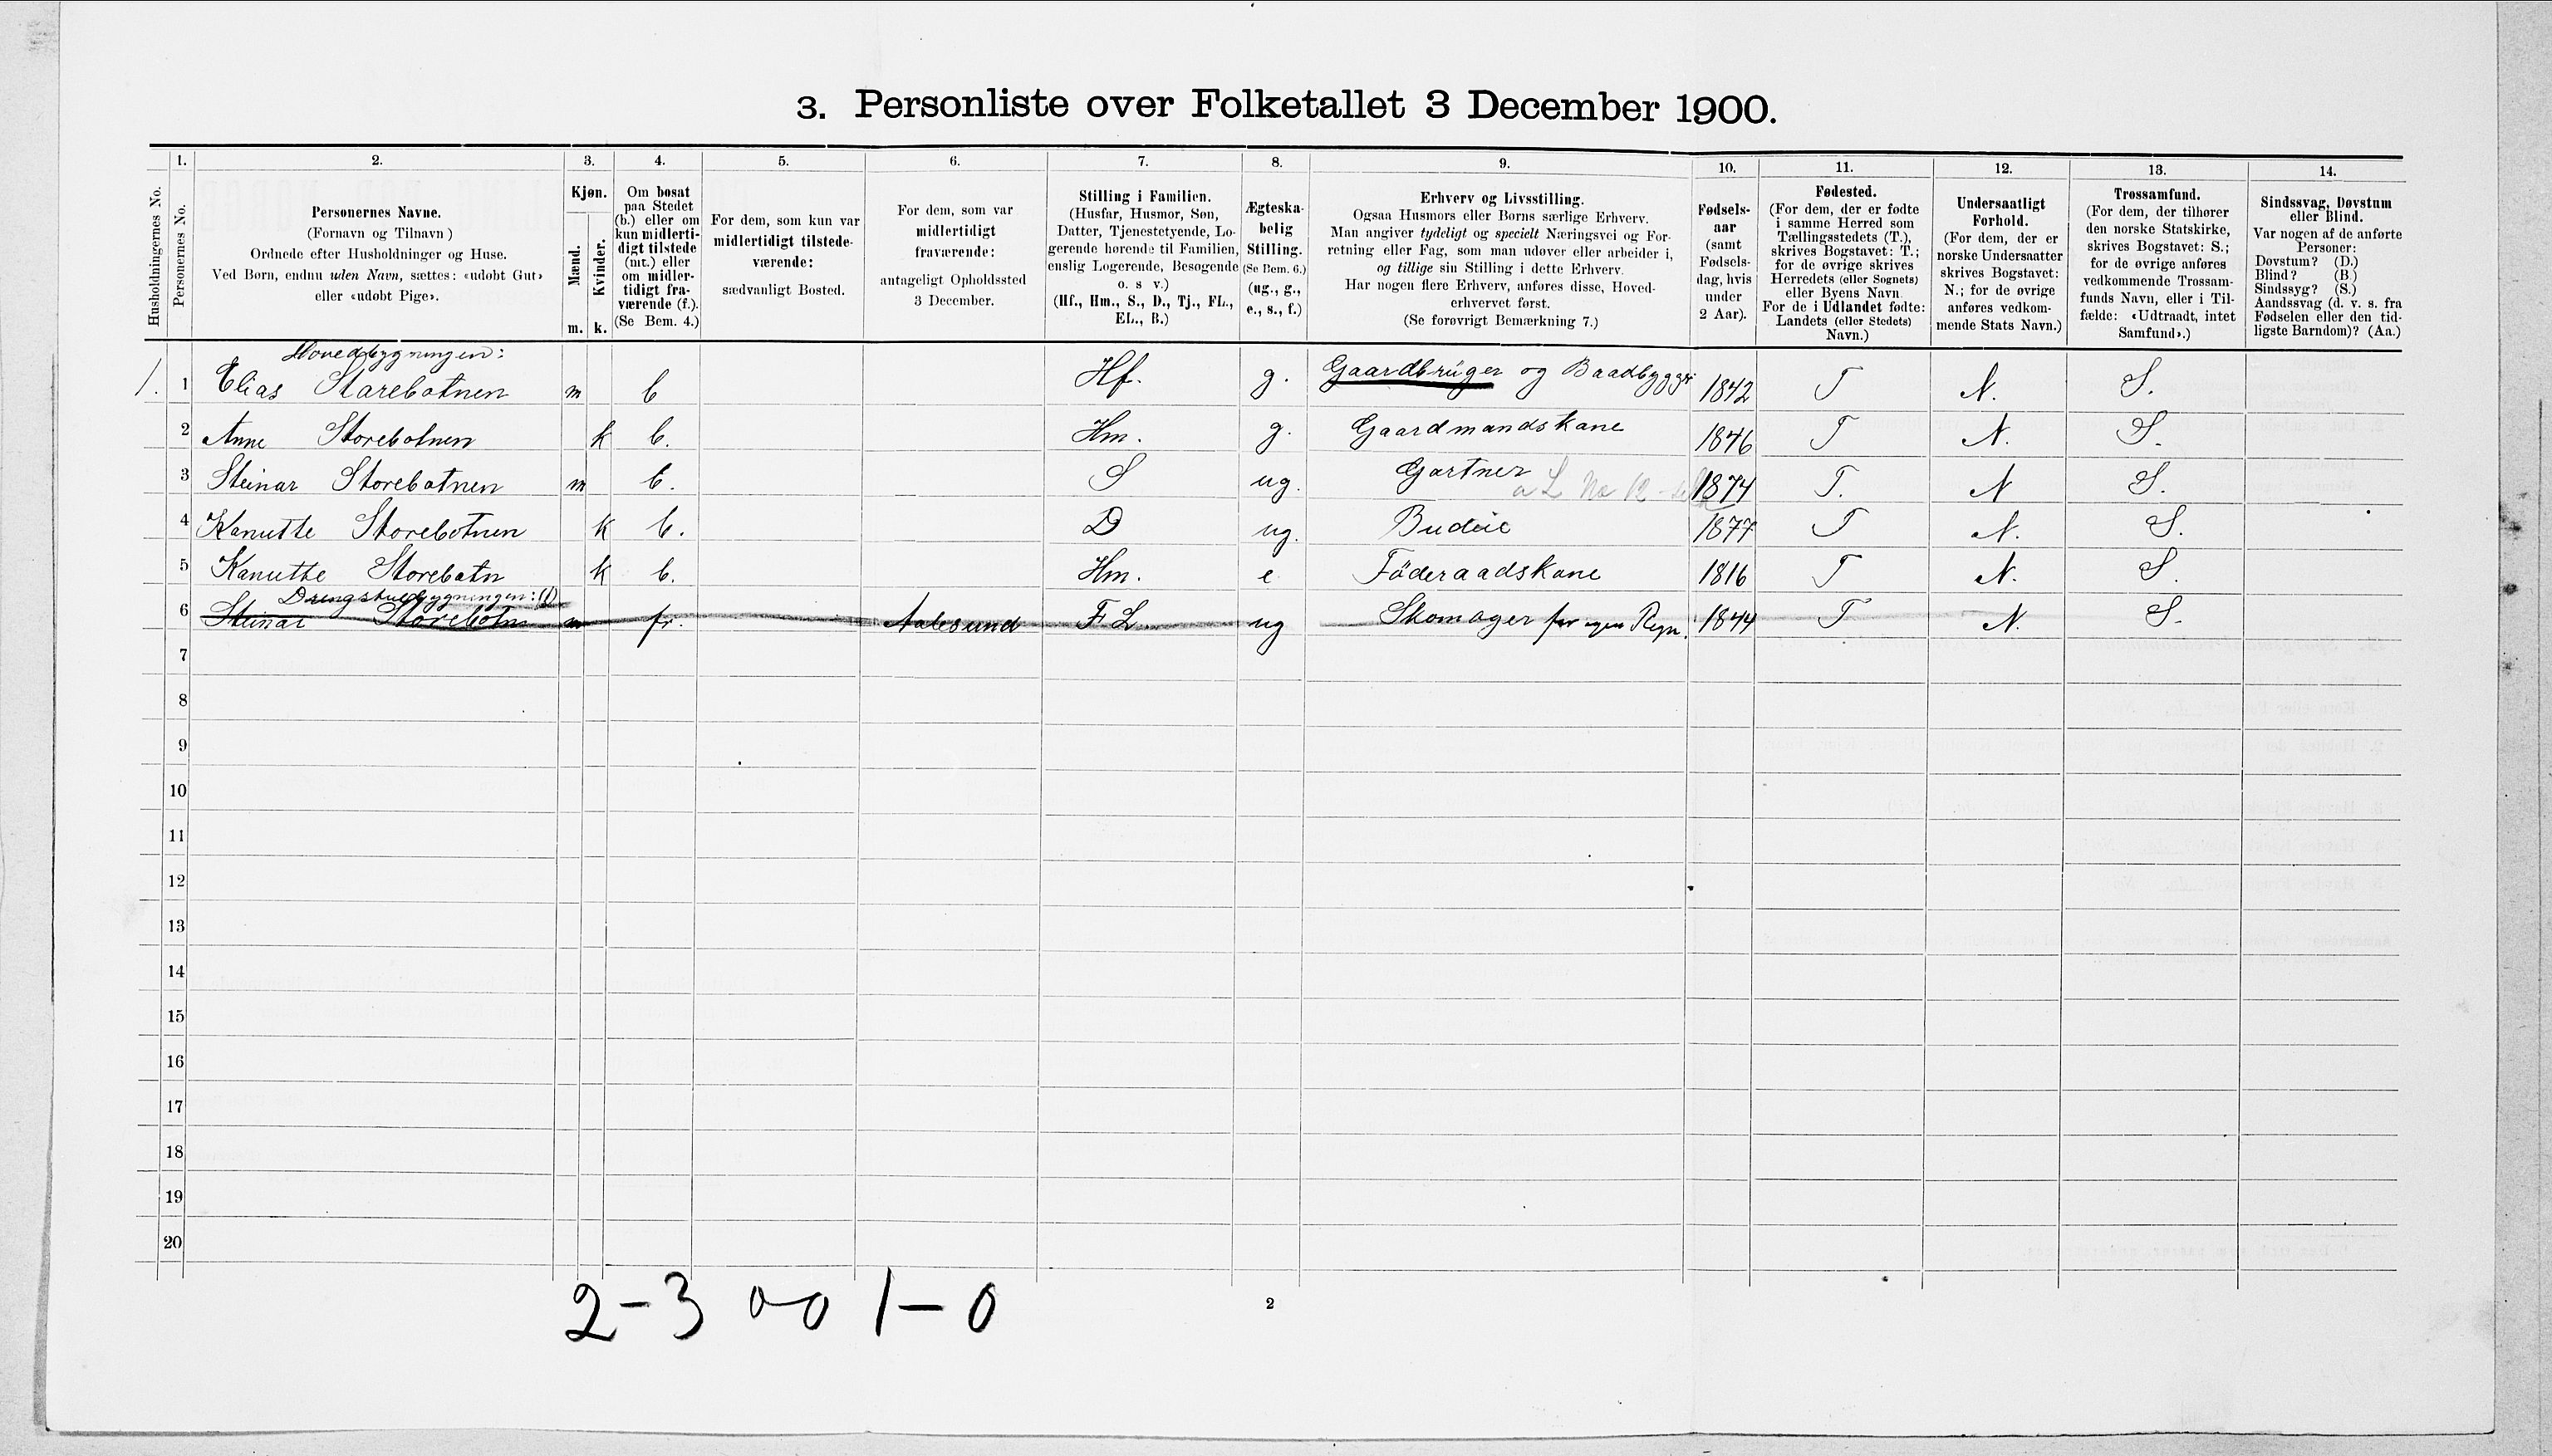 3. Personliste over Folketallet 3 December 1900.
Husholdningernes No.
1.
Personernes No.
2.
Personernes Navne.
(Fornavn og Tilnavn)
Ordnede efter Husholdninger og Huse.
Ved Børn, endnu uden Navn, sættes: «udøbt Gut»
eller «udøbt Pige».
3.
Kjøn.
Mænd.
m.
Kvinder.
k.
4.
Om bosat
paa Stedet
(b.) eller om
kun midlerti-
digt tilstede
(mt.) eller
om midler-
tidigt fra-
værende (f.).
(Se Bem. 4.)
5.
For dem, som kun var
midlertidigt tilstede-
værende:
sædvanligt Bosted.
6.
For dem, som var
midlertidigt
fraværende:
antageligt Opholdssted
3 December.
7.
Stilling i Familien.
(Husfar, Husmor, Søn,
Datter, Tjenestetyende, Lo-
gerende hørende til Familien,
enslig Logerende, Besøgende
o. s v.)
(Hf., Hm., S., D., Tj., FL.,
EL., B.)
8.
Ægteska-
belig
Stilling.
(Se Bem. 6.)
(ug., g.,
e., s., f.)
9.
Erhverv og Livsstilling.
Ogsaa Husmors eller Børns særlige Erhverv.
Man angiver tydeligt og specielt Næringsvei og For-
retning eller Fag, som man udøver eller arbeider i,
og tillige sin Stilling i dette Erhverv.
Har nogen flere Erhverv, anføres disse, Hoved-
erhvervet først.
(Se forøvrigt Bemærkning 7.)
10.
Fødsels-
aar
(samt
Fødsels-
dag, hvis
under
2 Aar).
11.
Fødested.
(For dem, der er fødte
i samme Herred som
Tællingsstedets (T.),
skrives Bogstavet: T.;
for de øvrige skrives
Herredets (eller Sognets)
eller Byens Navn.
For de i Udlandet fødte:
Landets (eller Stedets)
Navn.)
12.
Undersaatligt
Forhold.
(For dem, der er
norske Undersaatter
skrives Bogstavet:
N.; for de øvrige
anføres vedkom-
mende Stats Navn.)
13.
Trossamfund.
(For dem, der tilhører
den norske Statskirke,
skrives Bogstavet: S.;
for de øvrige anføres
vedkommende Trossam-
funds Navn, eller i Til-
fælde: «Udtraadt, intet
Samfund».)
14.
Sindssvag, Døvstum
eller Blind.
Var nogen af de anførte
Personer:
Døvstum? (D.)
Blind? (B.)
Sindssyg? (S.)
Aandssvag (d. v. s. fra
Fødselen eller den tid-
ligste Barndom)? (Aa.)
Hovedbygningen:
1. 1 Elias Storebotnen m b Hf. g. Gaardbruger og Baadbygger 1842 T N. S.
2 Anne Storebotnen k b. Hm. g. Gaardmandskone 1846 T N. S.
3 Steinar Storebotnen m b. S ug. Gartner 1874 T. N S.
4 Kanutte Storebotnen k b. D ug. Budeie 1877 T N. S.
5 Kanutte Storebotn k b. Hm. e Føderaadskone 1816 T N. S.
Drengstuebygningen: (1)
6 Steinar Storebotn m fr. Aalesund FL. ug Skomager for egen Regn. 1844 T N. S.
7
8
9
10
11
12
13
14
15
16
17
18
19
20
2-3 0-0 1-0
2